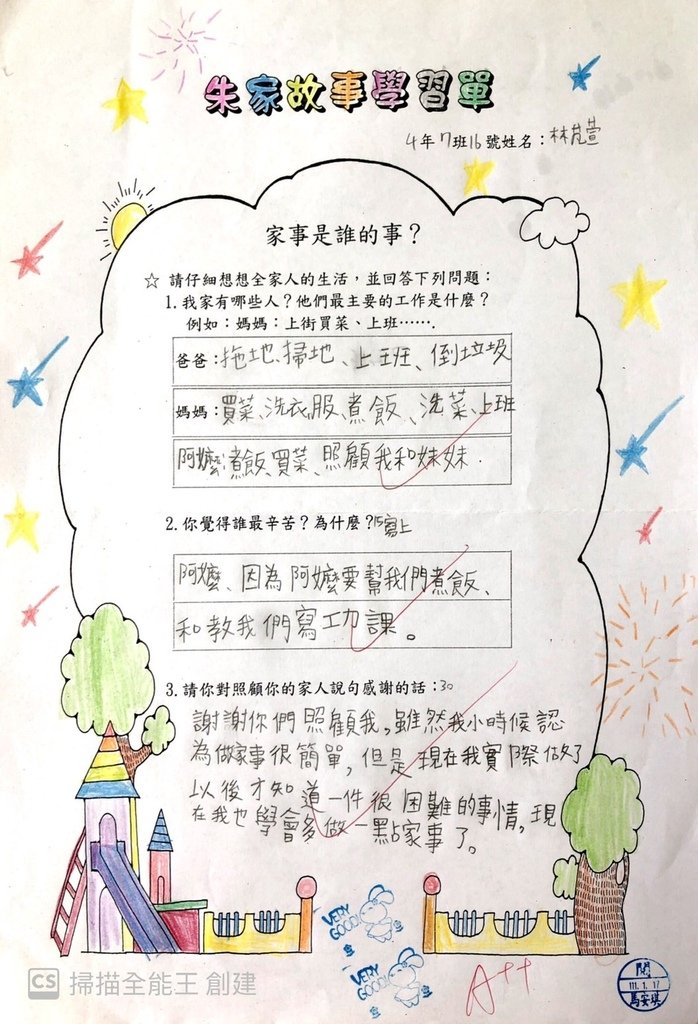 朱家故事學習單
4年7班16號姓名：林芃萱
家事是誰的事？
☆ 請仔細想想全家人的生活，並回答下列問題：
1.我家有哪些人？他們最主要的工作是什麼？
例如：媽媽：上街買菜、上班…….
爸爸：拖地、掃地、上班、倒垃圾
媽媽：買菜、洗衣服、煮飯、洗菜、上班
阿嬤：煮飯、買菜、照顧我和妹妹.
2.你覺得誰最辛苦？為什麼？15寫上
阿嬤、因為阿嬤要幫我們煮飯、
和教我們寫功課。
3.請你對照顧你的家人說句感謝的話：30
謝謝你們照顧我，雖然我小時候認
為做家事很簡單，但是現在我實際做了
以後才知道一件很困難的事情，現
在我也學會多做一點家事了。
VERY GOOD!
VERY GOOD!
A++
閱
111. 1. 17
馬安琪
CS 掃描全能王 創建